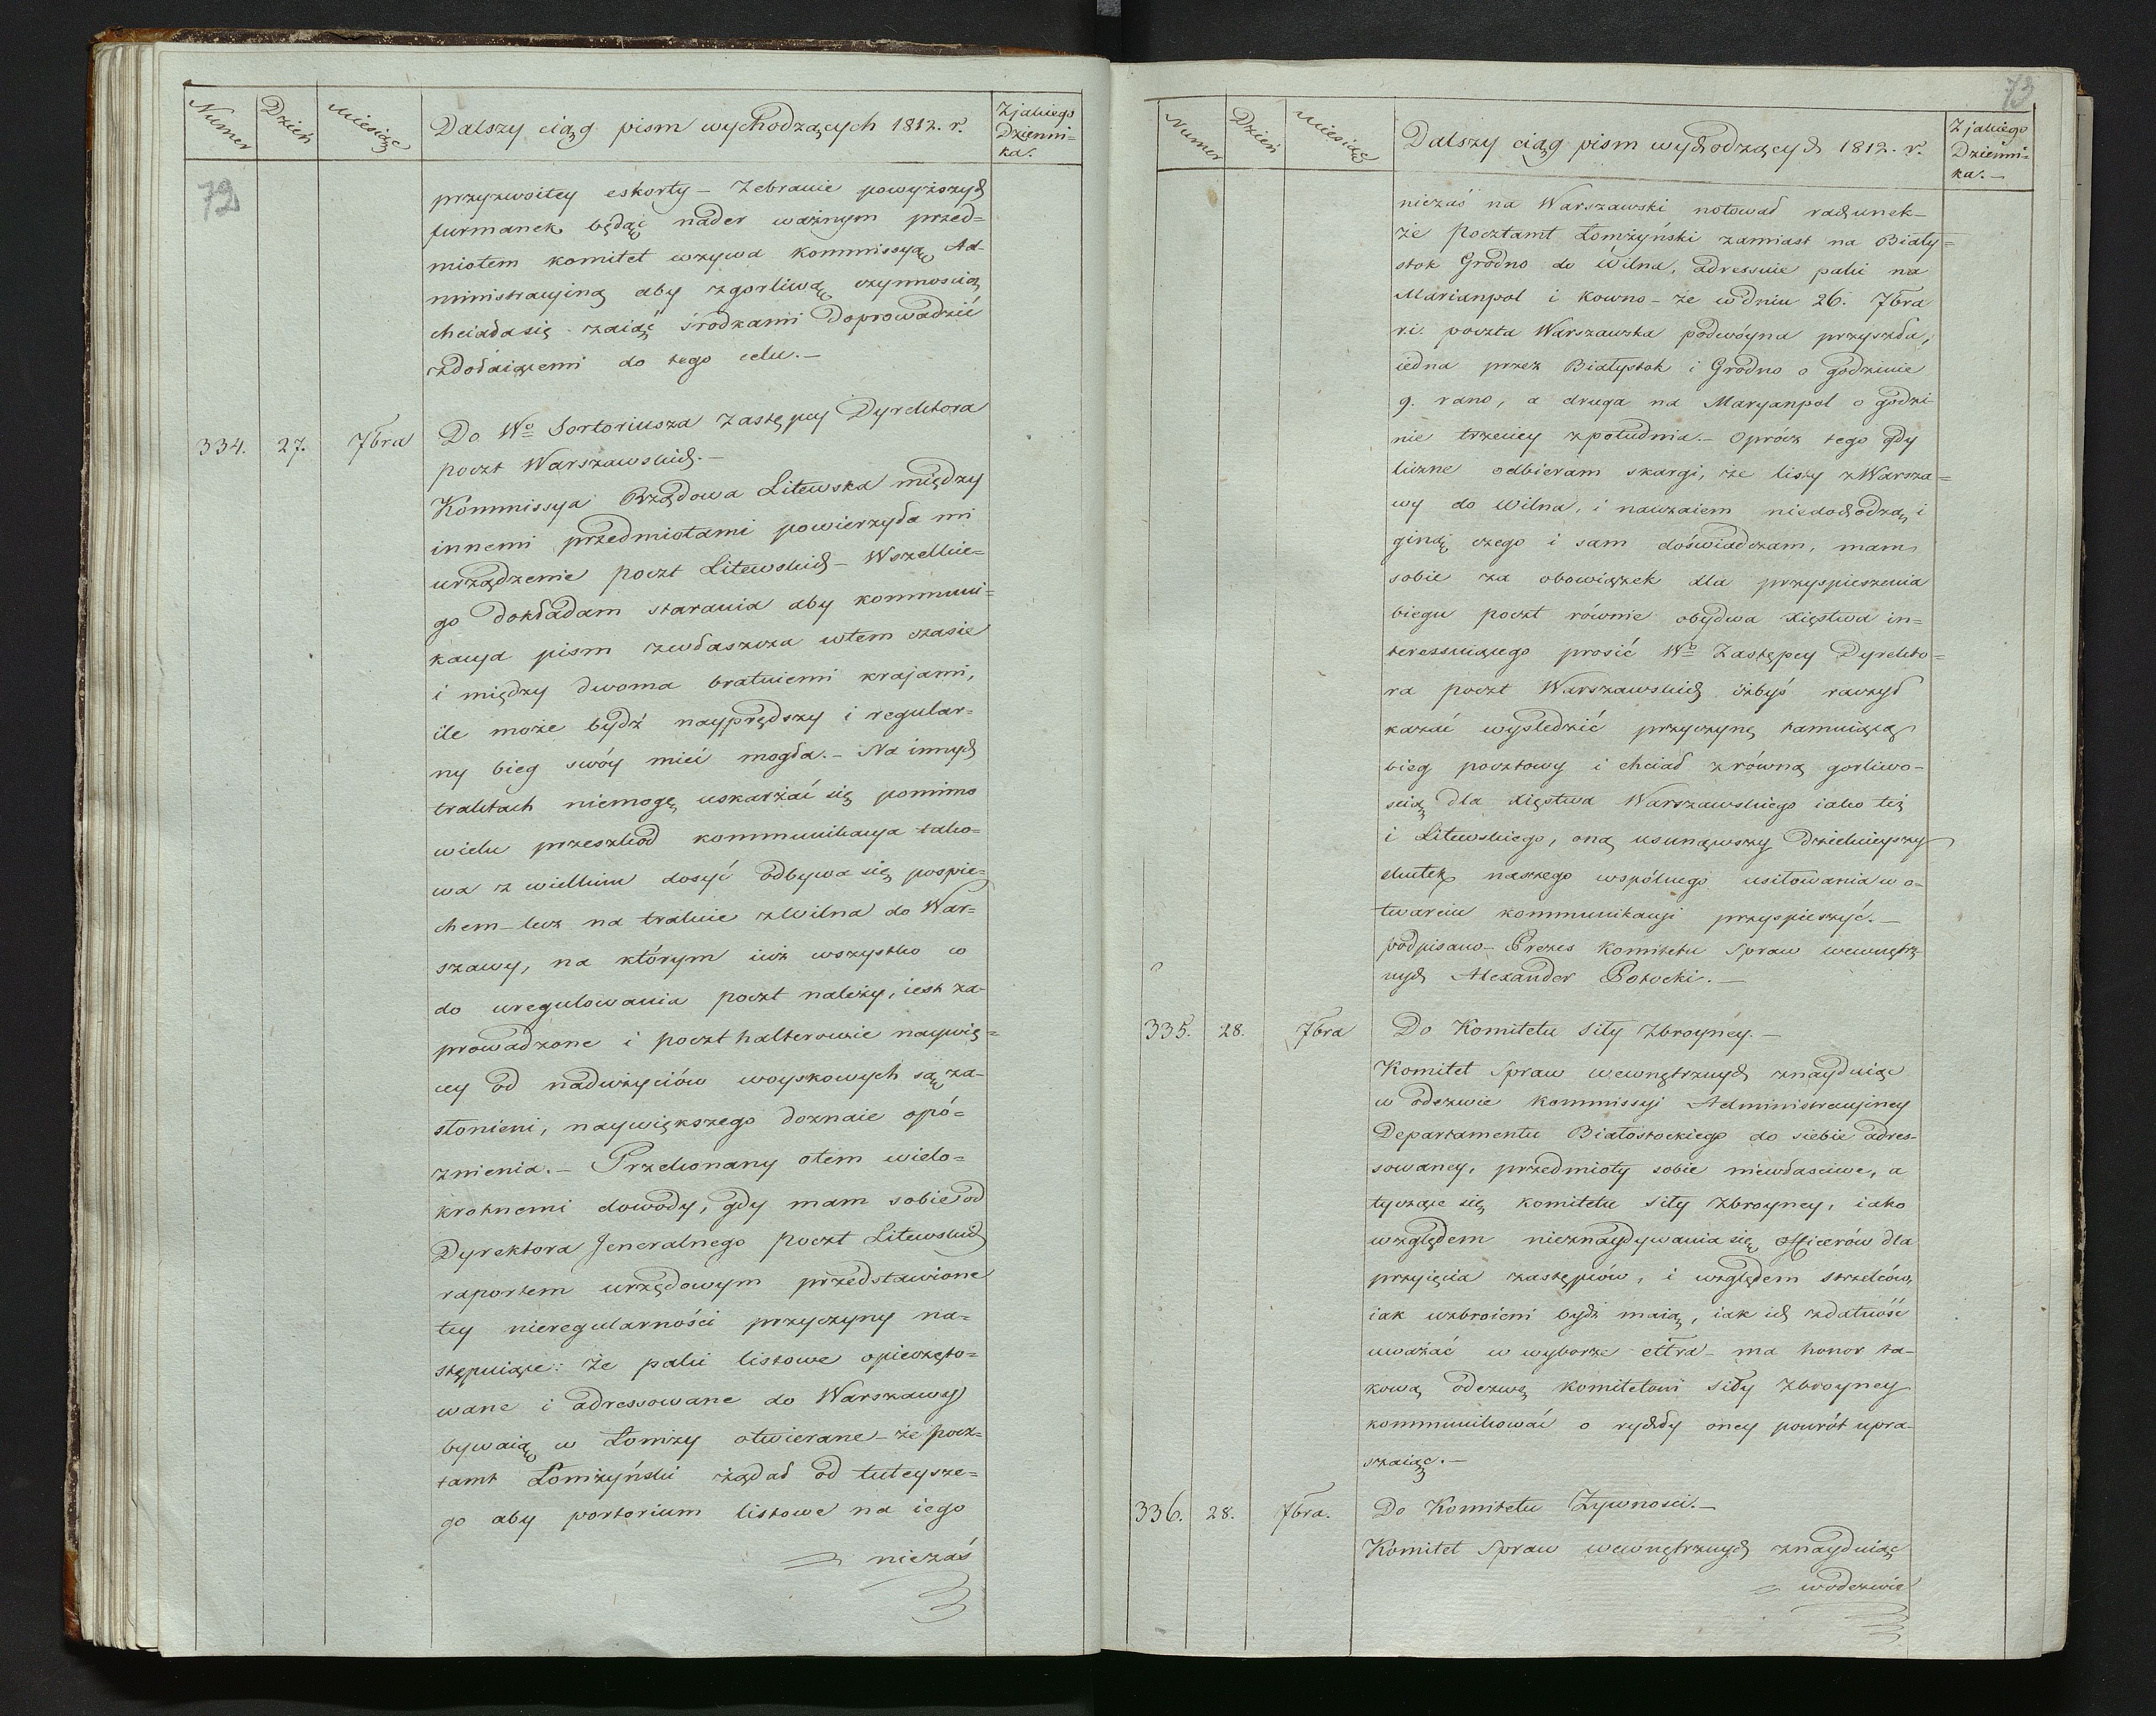 Numer Dzień Miesiąc Dalszy ciąg pism wychodzących 1812. r. Z jakiego Dzienni=
ka.
72
przyzwoitey eskorty – Zebranie powyższych
furmanek będąc nader ważnym przed=
miotem komitet wzywa kommissyą Ad-
ministracyiną aby zgorliwą czynnością
chciała się zaiąć środkami doprowadzić
zdołaiącemi do tego celu. –
334. 27. 7bra Do Wo Sortoriusza Zastępcy Dyrektora
poczt Warszawskich. –
Kommissya Rządowa Litewska między
innemi przedmiotami powierzyła mi
urządzenie poczt Litewskich – Wszelkie=
go dokładam starania aby kommuni=
kacya pism zwłaszcza wtem czasie
i między dwoma bratniemi krajami,
ile może bydź nayprędszy i regular=
ny bieg swóy mieć mogła. – Na innych
traktach niemogę uskarżać się pomimo
wielu przeszkod kommunikacya tako=
wa z wielkim dosyć odbywa się pospie=
chem – lecz na trakcie z Wilna do War=
szawy, na którym iuż wszystko co
do uregulowania poczt należy, iest za-
prowadzone i poczthalterowie naywię=
cy od nadużyciów woyskowych są za-
słonieni, naywiększego doznaie opó=
znienia. – Przekonany otem wielo=
krotnemi dowody, gdy mam sobie od
Dyrektora Jeneralnego poczt Litewskich
raportem urzędowym przedstawione
tey nieregularności przyczyny na=
stępuiące: że paki listowe opieczęto=
wane i adressowane do Warszawy
bywaią w Łomży otwierane – że pocz=
tamt Łomżyński żądał od tuteysze=
go aby portorium listowe na iego
= niezaś
73
Numer Dzień Miesiąc Dalszy ciąg pism wychodzących 1812. r. Z jakiego
Dzienni=
ka. –
niezaś na Warszawski notował rachunek –
że Pocztamt Łomżyński zamiast na Biały=
stok Grodno do Wilna, adressuie paki na
Marianpol i Kowno – że w dniu 26. 7bra
r.i. poczta Warszawska podwóyna przyszła,
iedna przez Białystok i Grodno o godzinie
9. rano, a druga na Maryanpol o godzi
nie trzeciey zpołudnia. – Oprócz tego gdy
liczne odbieram skargi, że listy z Warsza=
wy do Wilna, i nawzaiem niedochodzą i
giną czego i sam doświadczam, mam
sobie za obowiązek dla przyspieszenia
biegu poczt równie obydwa Xięstwa in=
teressuiącego prosić Wo Zastępcy Dyrekto=
ra poczt Warszawskich iżbyś raczył
kazać wyśledzić przyczynę tamuiącą
bieg pocztowy i chciał z równą gorliwo-
scią dla Xięstwa Warszawskiego iako też
i Litewskiego, oną usunąwszy dzielnieyszy
skutek naszego wspólnego usiłowania w o-
twarciu kommunikacyi przyspieszyć. –
podpisano – Prezes Komitetu Spraw wewnętrz
nych Alexander Potocki. –
335. 28. 7bra Do Komitetu Siły Zbroyney. –
Komitet Spraw wewnętrznych znayduiąc
w odezwie kommissyi Administracyiney
Departamentu Białostockiego do siebie adres-
sowaney, przedmioty sobie niewłasciwe, a
tyczące się komitetu Siły Zbroyney, iako
względem nieznaydywania się officerów dla
przyięcia zastępców, i względem strzelców,
iak uzbroieni bydź maią, iak ich zdatność
uważać w wyborze ettra – ma honor ta-
kową odezwę komitetowi Siły Zbroyney
kommunikować o rychły oney powrót upra-
szaiąc. –
336. 28. 7bra. Do Komitetu Żywnosci. –
Komitet Spraw wewnętrznych znayduiąc
= wodezwie